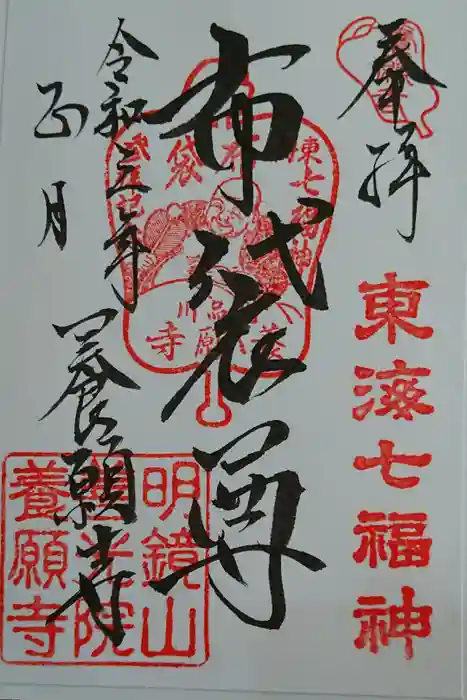 奉拝
東海七福神
布袋尊
令和五年
正月
養願寺
東七福神
布袋
品川
養願寺
明鏡山
善光院
養願寺